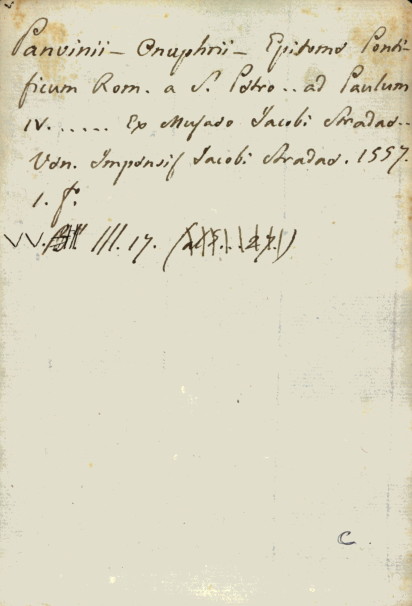 Panvinii – Onuphrii – Epitome Ponti-
ficum Rom. a S. Petro .. ad Paulum
IV. ..... Ex Musaeo Jacobi Stradae ..
Ven. Impensis Jacobi Stradae. 1557.
1. f.
VV. III. 17.
C.